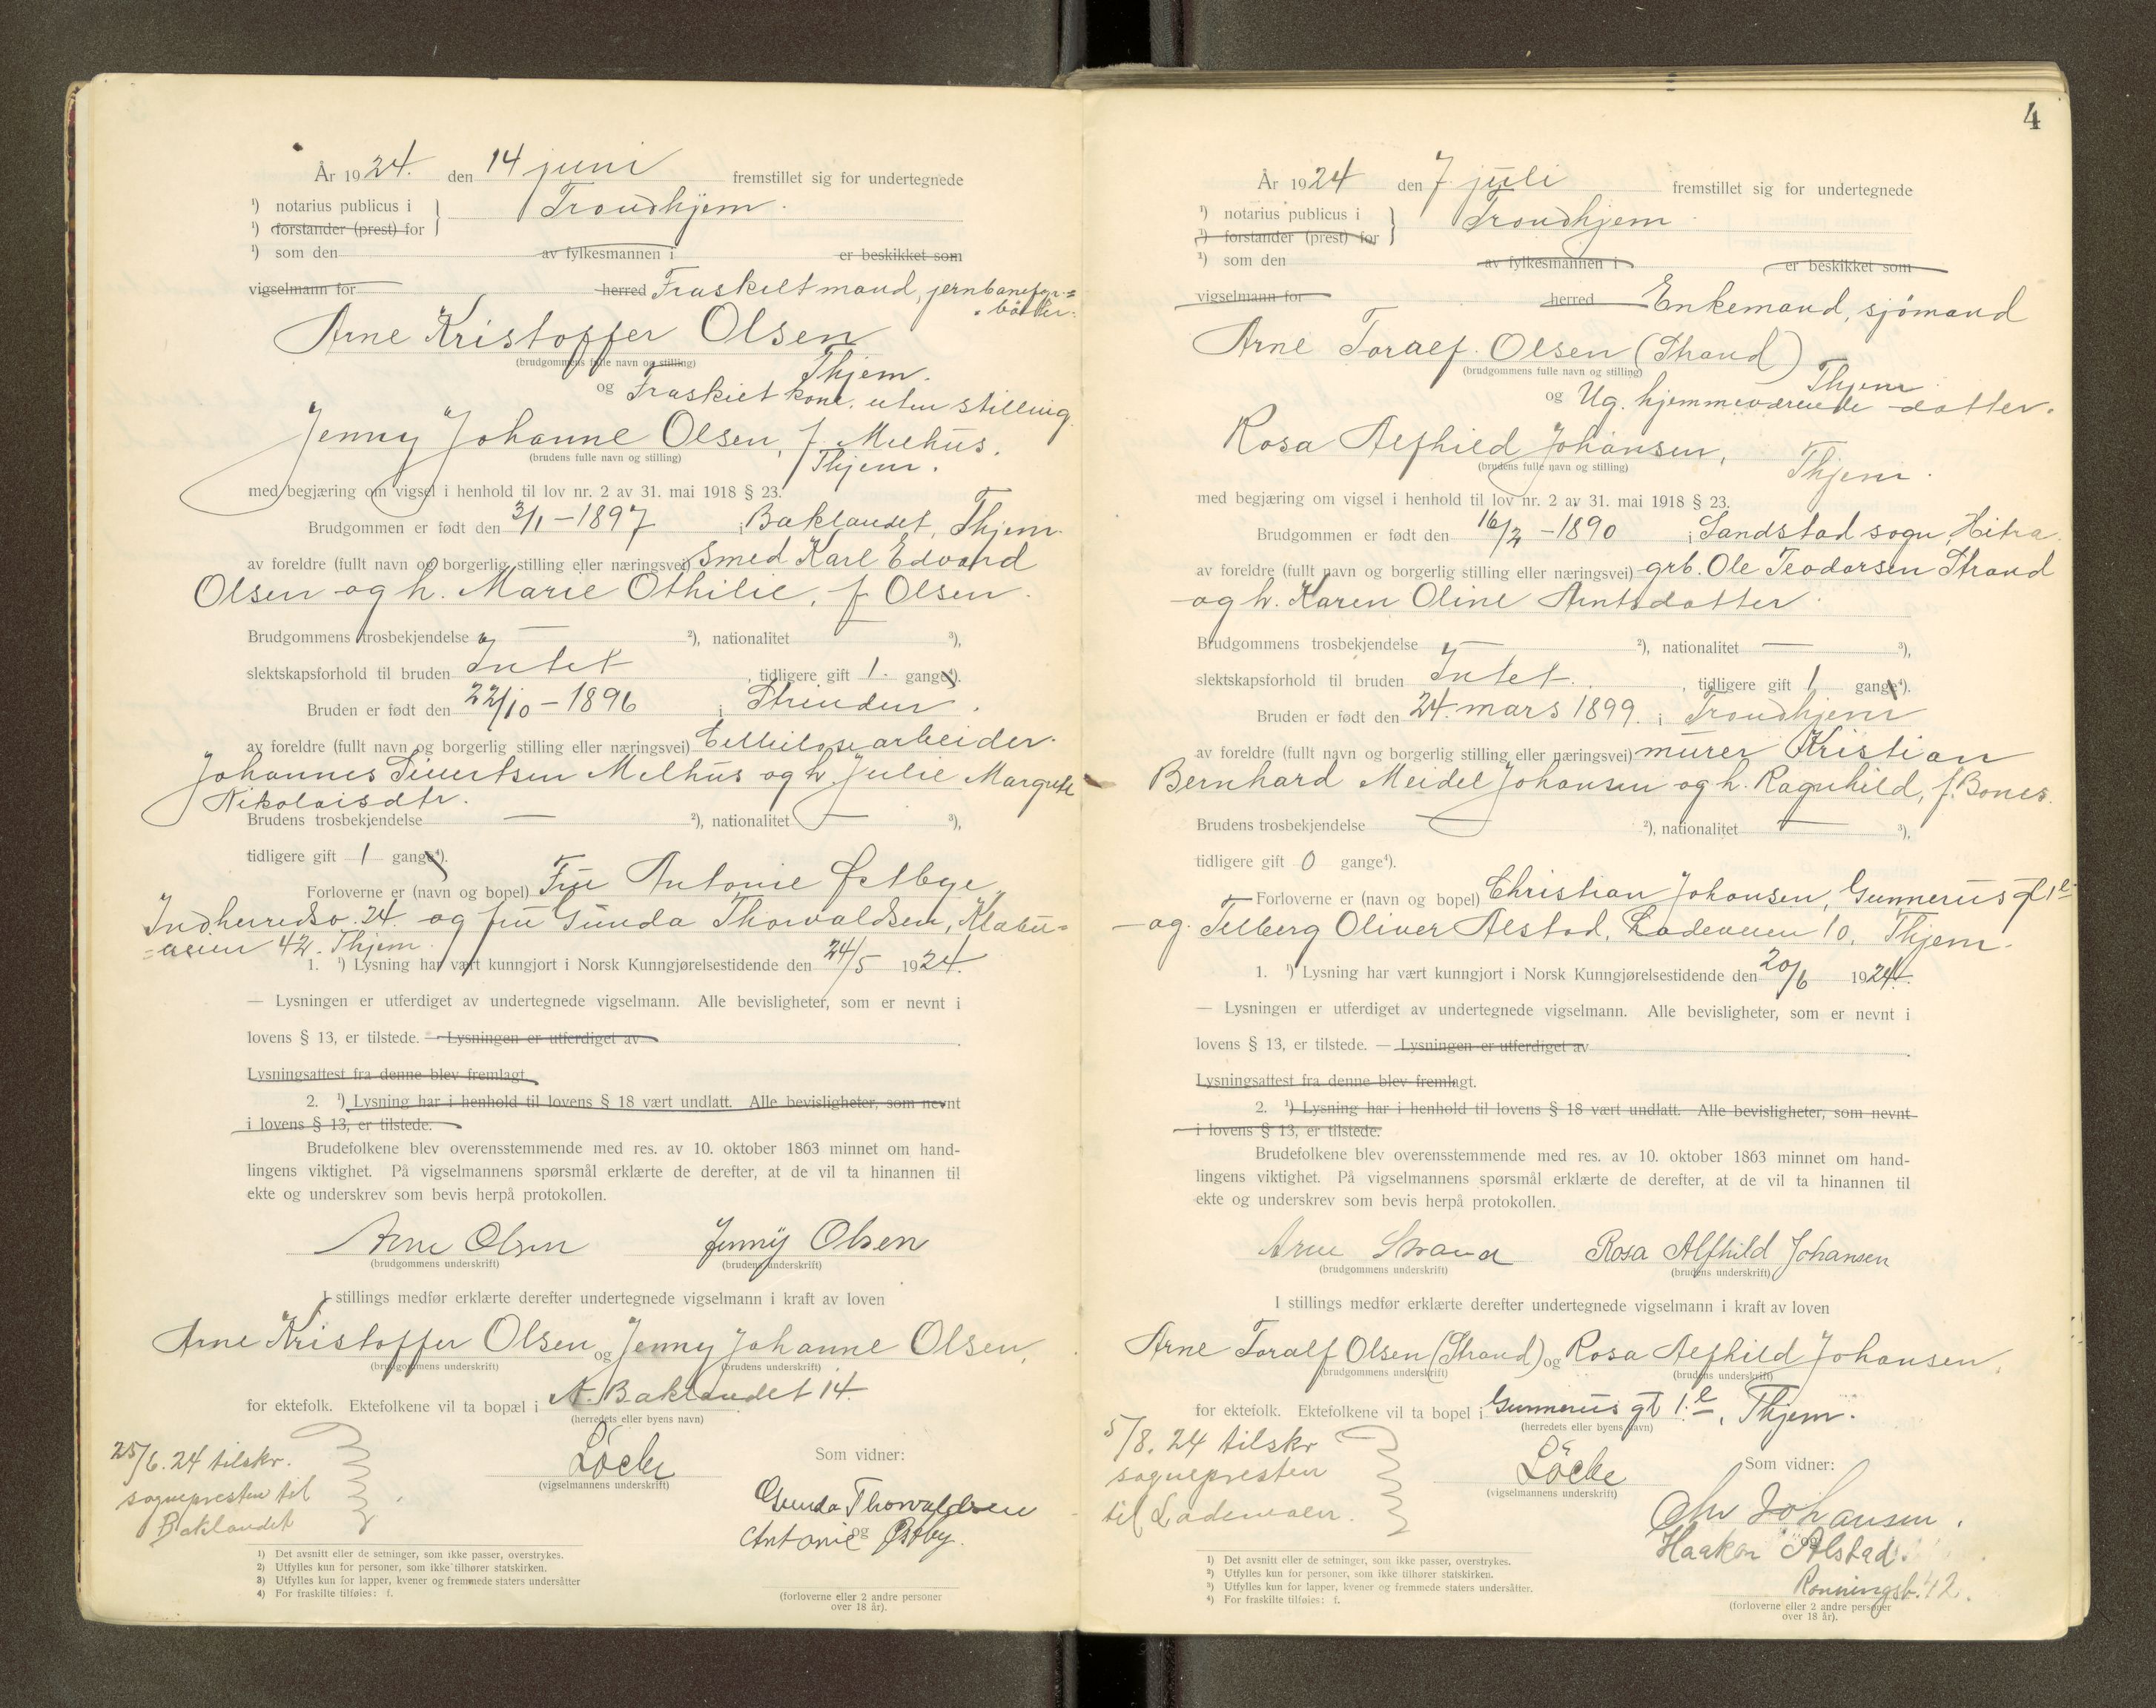 År 1924. den 14 juni fremstillet sig for undertegnede
¹) notarius publicus i Trondhjem.
¹) forstander (prest) for
¹) som den av fylkesmannen i er beskikket som
vigselmann for herred Fraskilt mand, jernbanefor=
Arne Kristoffer Olsen
(brudgommens fulle navn og stilling)
Thjem.
og Fraskilt kone, uten stilling
Jenny Johanne Olsen, f. Melhus.
(brudens fulle navn og stilling) Thjem.
med begjæring om vigsel i henhold til lov nr. 2 av 31. mai 1918 § 23.
Brudgommen er født den 3/1 - 1897 i Baklandet, Thjem.
av foreldre (fullt navn og borgerlig stilling eller næringsvei) Smed Karl Edvard
Olsen og h. Marie Othilie, f Olsen.
Brudgommens trosbekjendelse — ²), nationalitet ³),
slektskapsforhold til bruden Intet, tidligere gift 1. gange⁴).
Bruden er født den 22/10 - 1896 i Strinden.
av foreldre (fullt navn og borgerlig stilling eller næringsvei) Cellulosearbeider
Johannes Sivertsen Melhus og h. Julie Margrete
Nikolaisdtr.
Brudens trosbekjendelse — ²), nationalitet — ³),
tidligere gift 1 gange⁴).
Forloverne er (navn og bopel) Frue Antonie Østbye
Indherredsv. 24. og fru Gunda Thorvaldsen, Klabu=
=veien 42. Thjem.
1. ¹) Lysning har vært kunngjort i Norsk Kunngjørelsestidende den 24/5 1924.
— Lysningen er utferdiget av undertegnede vigselmann. Alle bevisligheter, som er nevnt i
lovens § 13, er tilstede. — Lysningen er utferdiget av
Lysningsattest fra denne blev fremlagt.
2. ¹) Lysning har i henhold til lovens § 18 vært undlatt. Alle bevisligheter, som nevnt
i lovens § 13, er tilstede.
Brudefolkene blev overensstemmende med res. av 10. oktober 1863 minnet om hand-
lingens viktighet. På vigselmannens spørsmål erklærte de derefter, at de vil ta hinannen til
ekte og underskrev som bevis herpå protokollen.
Arne Olsen Jenny Olsen
(brudgommens underskrift) (brudens underskrift)
I stillings medfør erklærte derefter undertegnede vigselmann i kraft av loven
Arne Kristoffer Olsen og Jenny Johanne Olsen,
(brudgommens underskrift) (brudens underskrift)
for ektefolk. Ektefolkene vil ta bopæl i N. Baklandet 14.
(herredets eller byens navn)
25/6. 24 tilskr.
sognepresten til
Baklandet
Löcke
(vigselmannens underskrift)
Som vidner:
Gunda Thorvaldsen
og
Antonie Østby.
1) Det avsnitt eller de setninger, som ikke passer, overstrykes.
2) Utfylles kun for personer, som ikke tilhører statskirken.
3) Utfylles kun for lapper, kvener og fremmede staters undersåtter
4) For fraskilte tilføies: f.
(forloverne eller 2 andre personer
over 18 år).
4
År 1924 den 7. juli fremstillet sig for undertegnede
¹) notarius publicus i Trondhjem.
¹) forstander (prest) for
¹) som den av fylkesmannen i er beskikket som
vigselmann for herred Enkemand, sjömand
Arne Toralf Olsen (Strand)
(brudgommens fulle navn og stilling)
Thjem
og Ug. hjemmeværende datter.
Rosa Alfhild Johansen,
(brudens fulle navn og stilling) Thjem.
med begjæring om vigsel i henhold til lov nr. 2 av 31. mai 1918 § 23.
Brudgommen er født den 16/2 - 1890 i Sandstad sogn, Hitra.
av foreldre (fullt navn og borgerlig stilling eller næringsvei) grb. Ole Teodorsen Strand
og h. Karen Oline Arntsdatter.
Brudgommens trosbekjendelse — ²), nationalitet — ³),
slektskapsforhold til bruden Intet., tidligere gift 1 gange⁴).
Bruden er født den 24. mars 1899. i Trondhjem
av foreldre (fullt navn og borgerlig stilling eller næringsvei) murer Kristian
Bernhard Meidel Johansen og h. Ragnhild, f. Bones.
Brudens trosbekjendelse — ²), nationalitet — ³),
tidligere gift 0 gange⁴).
Forloverne er (navn og bopel) Christian Johansen, Gunnerus gt 1 e
og Telberg Oliver Alstad, Ladeveien 10, Thjem.
1. ¹) Lysning har vært kunngjort i Norsk Kunngjørelsestidende den 20/6 1924.
— Lysningen er utferdiget av undertegnede vigselmann. Alle bevisligheter, som er nevnt i
lovens § 13, er tilstede. — Lysningen er utferdiget av
Lysningsattest fra denne blev fremlagt.
2. ¹) Lysning har i henhold til lovens § 18 vært undlatt. Alle bevisligheter, som nevnt
i lovens § 13, er tilstede.
Brudefolkene blev overensstemmende med res. av 10. oktober 1863 minnet om hand-
lingens viktighet. På vigselmannens spørsmål erklærte de derefter, at de vil ta hinannen til
ekte og underskrev som bevis herpå protokollen.
Arne Strand Rosa Alfhild Johansen
(brudgommens underskrift) (brudens underskrift)
I stillings medfør erklærte derefter undertegnede vigselmann i kraft av loven
Arne Toralf Olsen (Strand) og Rosa Alfhild Johansen,
(brudgommens underskrift) (brudens underskrift)
for ektefolk. Ektefolkene vil ta bopel i Gunnerus gt 1. e, Thjem.
(herredets eller byens navn)
5/8. 24 tilskr
sognepresten
til Lademoen.
Löcke
(vigselmannens underskrift)
Som vidner:
Chr Johansen.
og
Haakon Alstad.
Ronningsb. 42.
1) Det avsnitt eller de setninger, som ikke passer, overstrykes.
2) Utfylles kun for personer, som ikke tilhører statskirken.
3) Utfylles kun for lapper, kvener og fremmede staters undersåtter.
4) For fraskilte tilføies: f.
(forloverne eller 2 andre personer
over 18 år).